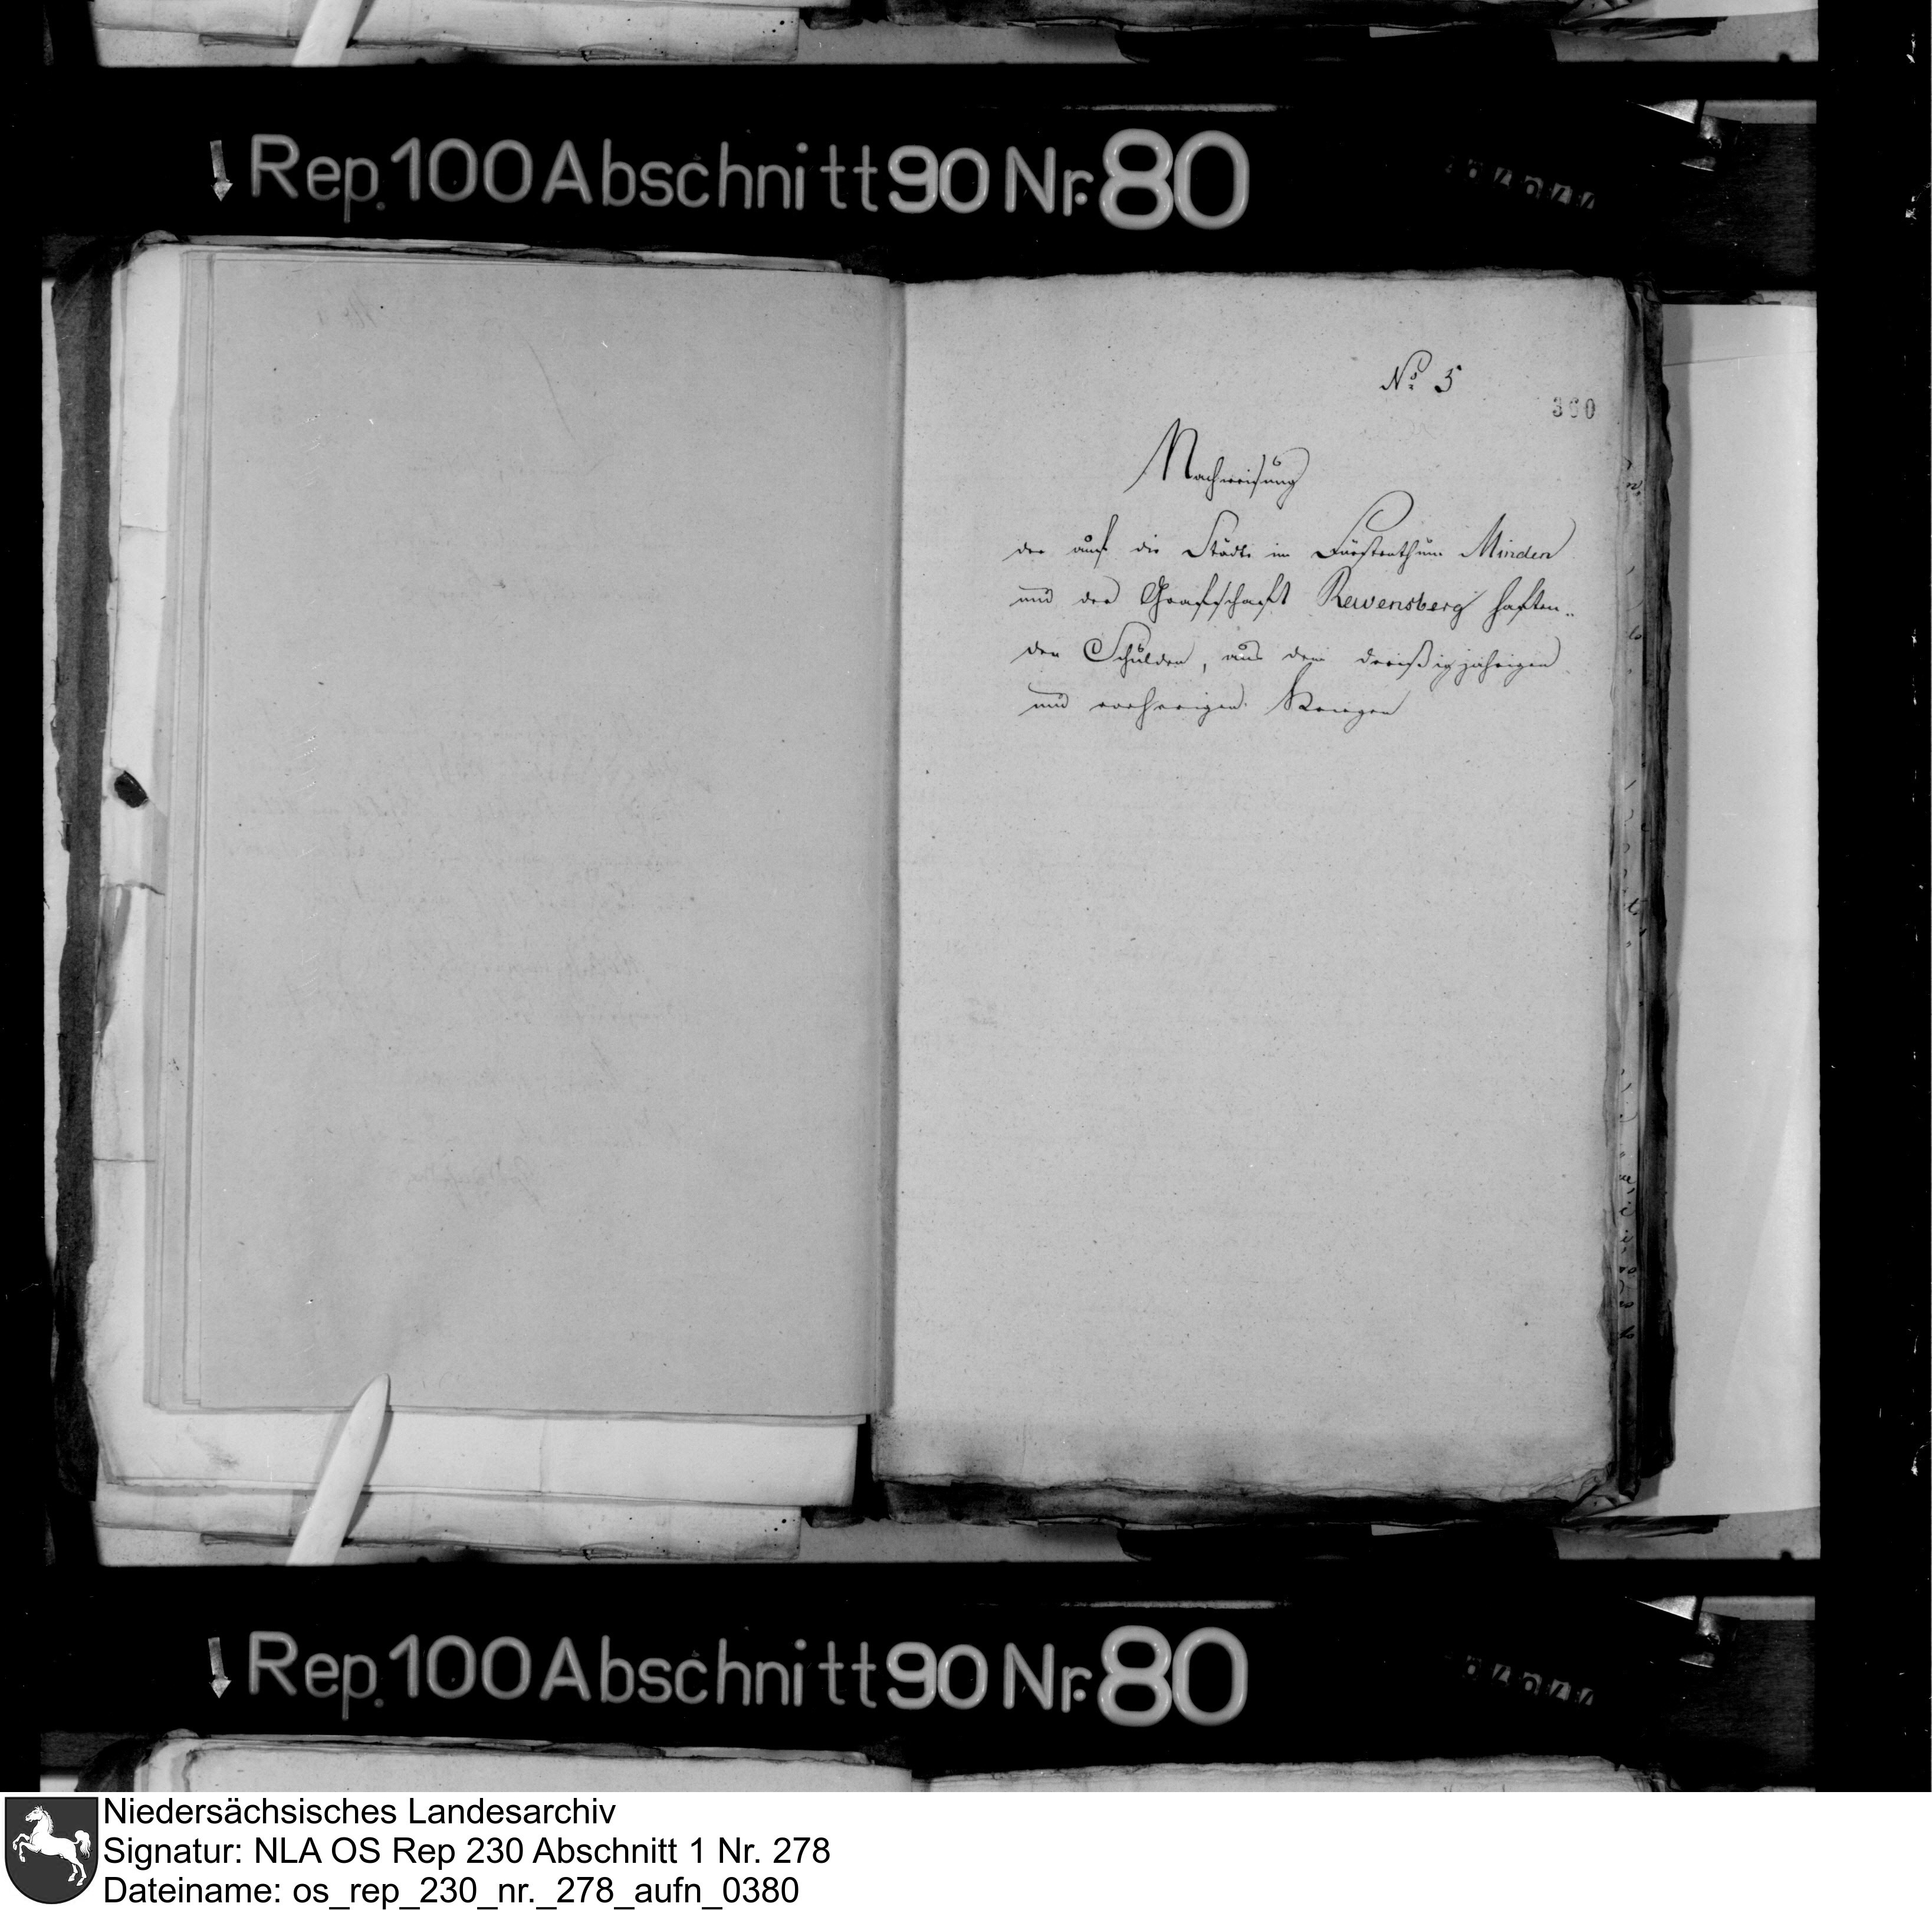 Rep. 100 Abschnitt 90 Nr. 80
No 5
360
Nachweisung
der auf die Städte im Fürstenthum Minden
und der Grafschaft Ravensberg haften„
den Schulden, aus dem dreißigjährigen
und vorherigen Kriegen
Rep. 100 Abschnitt 90 Nr. 80
Niedersächsisches Landesarchiv
Signatur: NLA OS Rep 230 Abschnitt 1 Nr. 278
Dateiname: os_rep_230_nr._278_aufn_0380